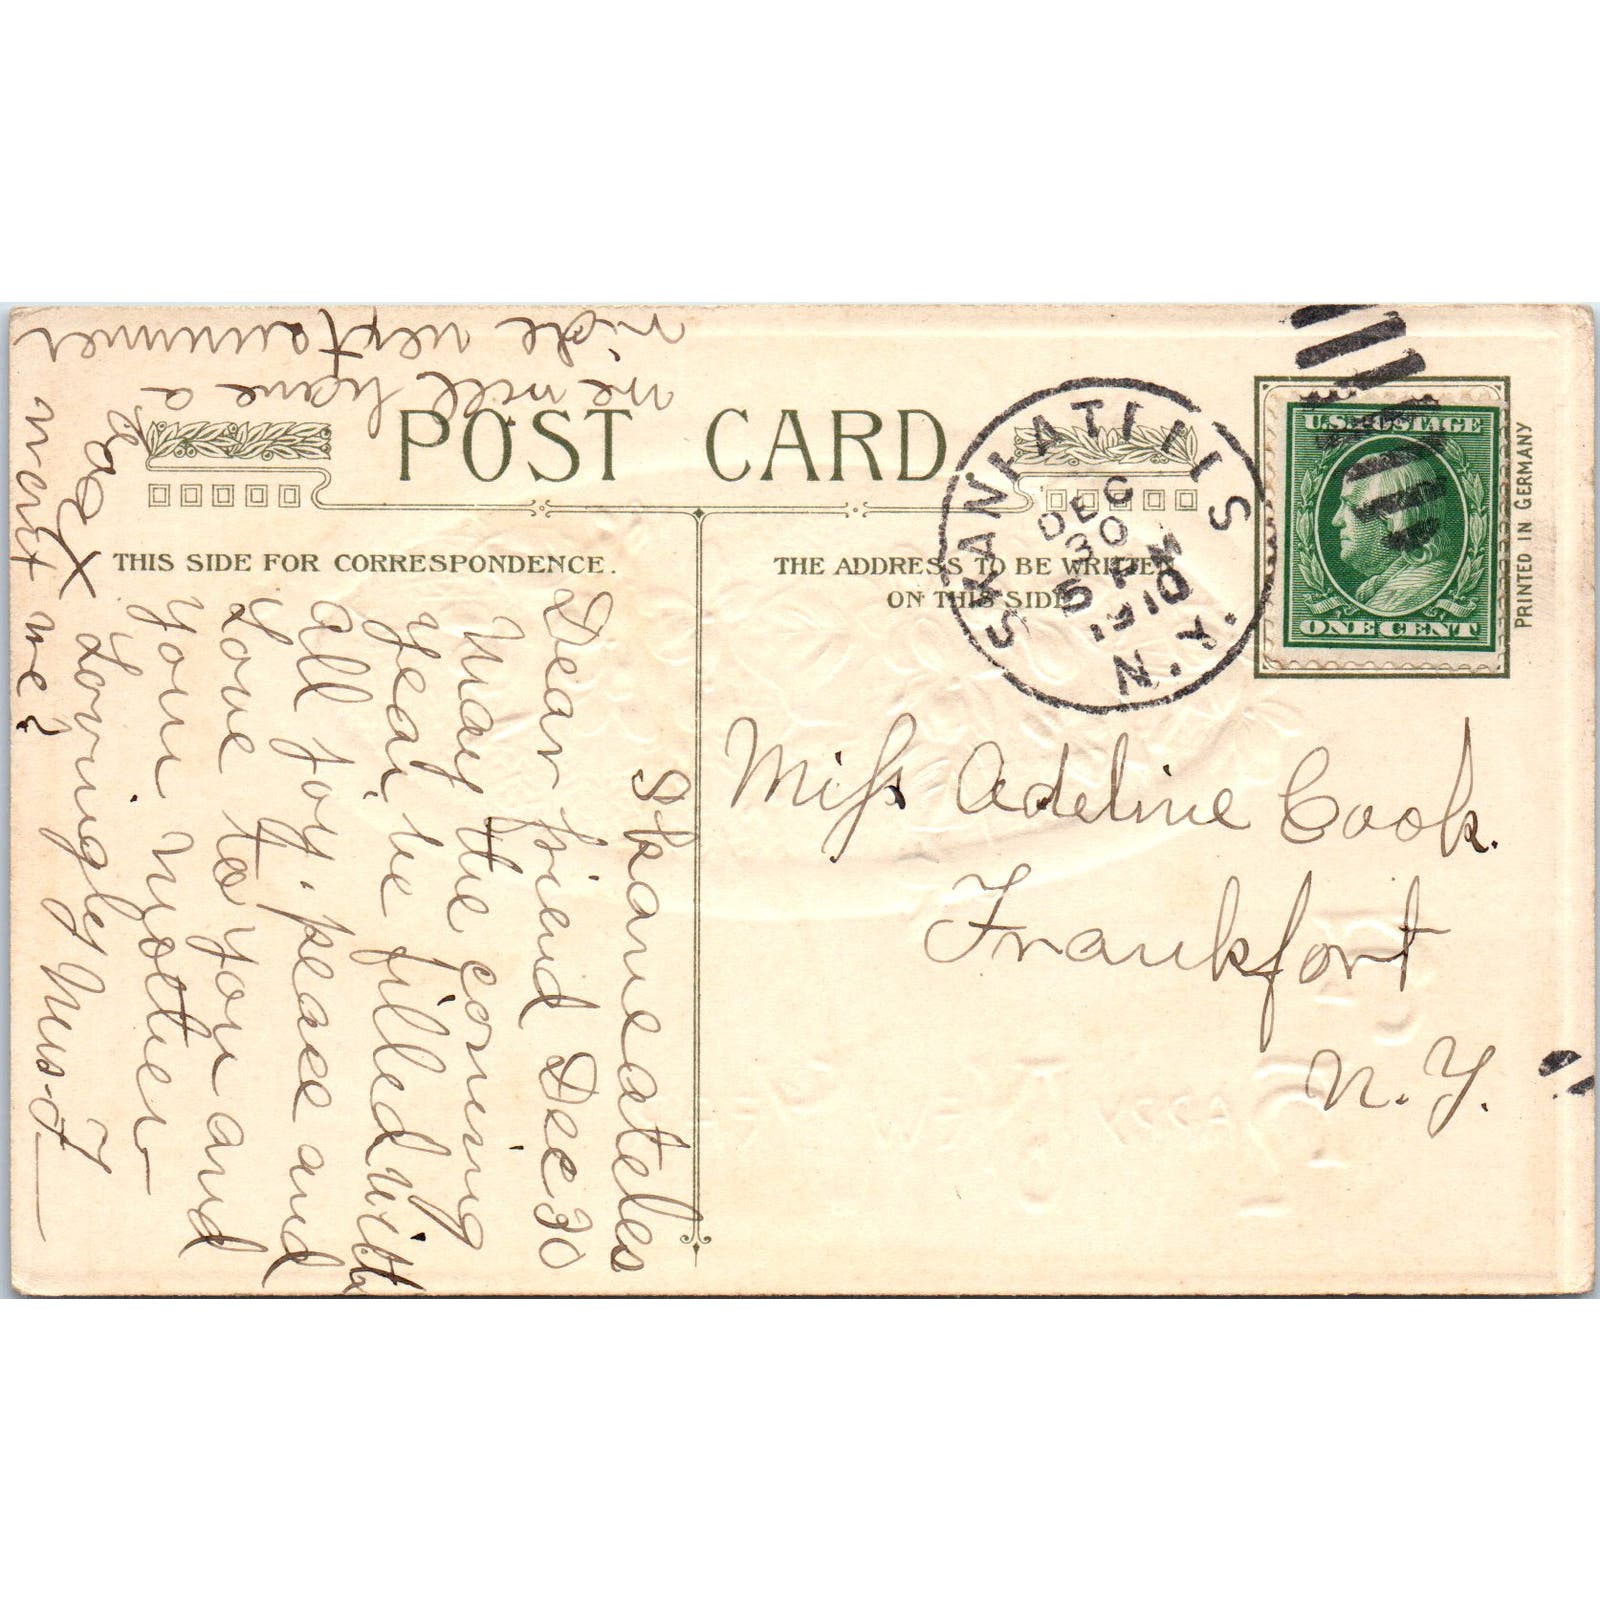 POST CARD
THIS SIDE FOR CORRESPONDENCE.
THE ADDRESS TO BE WRITTEN
ON THIS SIDE
SKANEATELES
N.Y.
DEC
30
5 PM
1910
U.S. POSTAGE
ONE CENT
PRINTED IN GERMANY
Miss Adeline Cook.
Frankfort
N.Y.
Skaneateles
Dear friend Dec 30
May the coming
Year be filled with
all joy. peace and
Love to you and
your Mother
Lovingly Mrs. F
we will have a
ride next summer
wont we?
HAPPY NEW YEAR